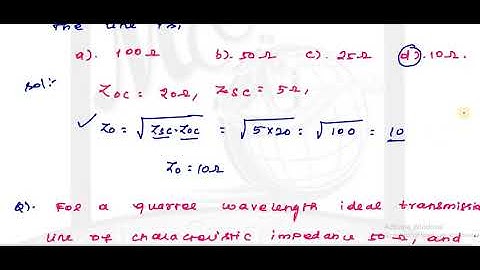 The line is:
a). 100Ω b). 50Ω c). 25Ω d). 10Ω.
Sol:-
Zoc = 20Ω, Zsc = 5Ω,
✓ Zo = √Zsc·Zoc = √5×20 = √100 = 10
Zo = 10Ω
Q). For a quarter wavelength ideal transmissio
line of characteristic impedance 50Ω, and
Activate Windows